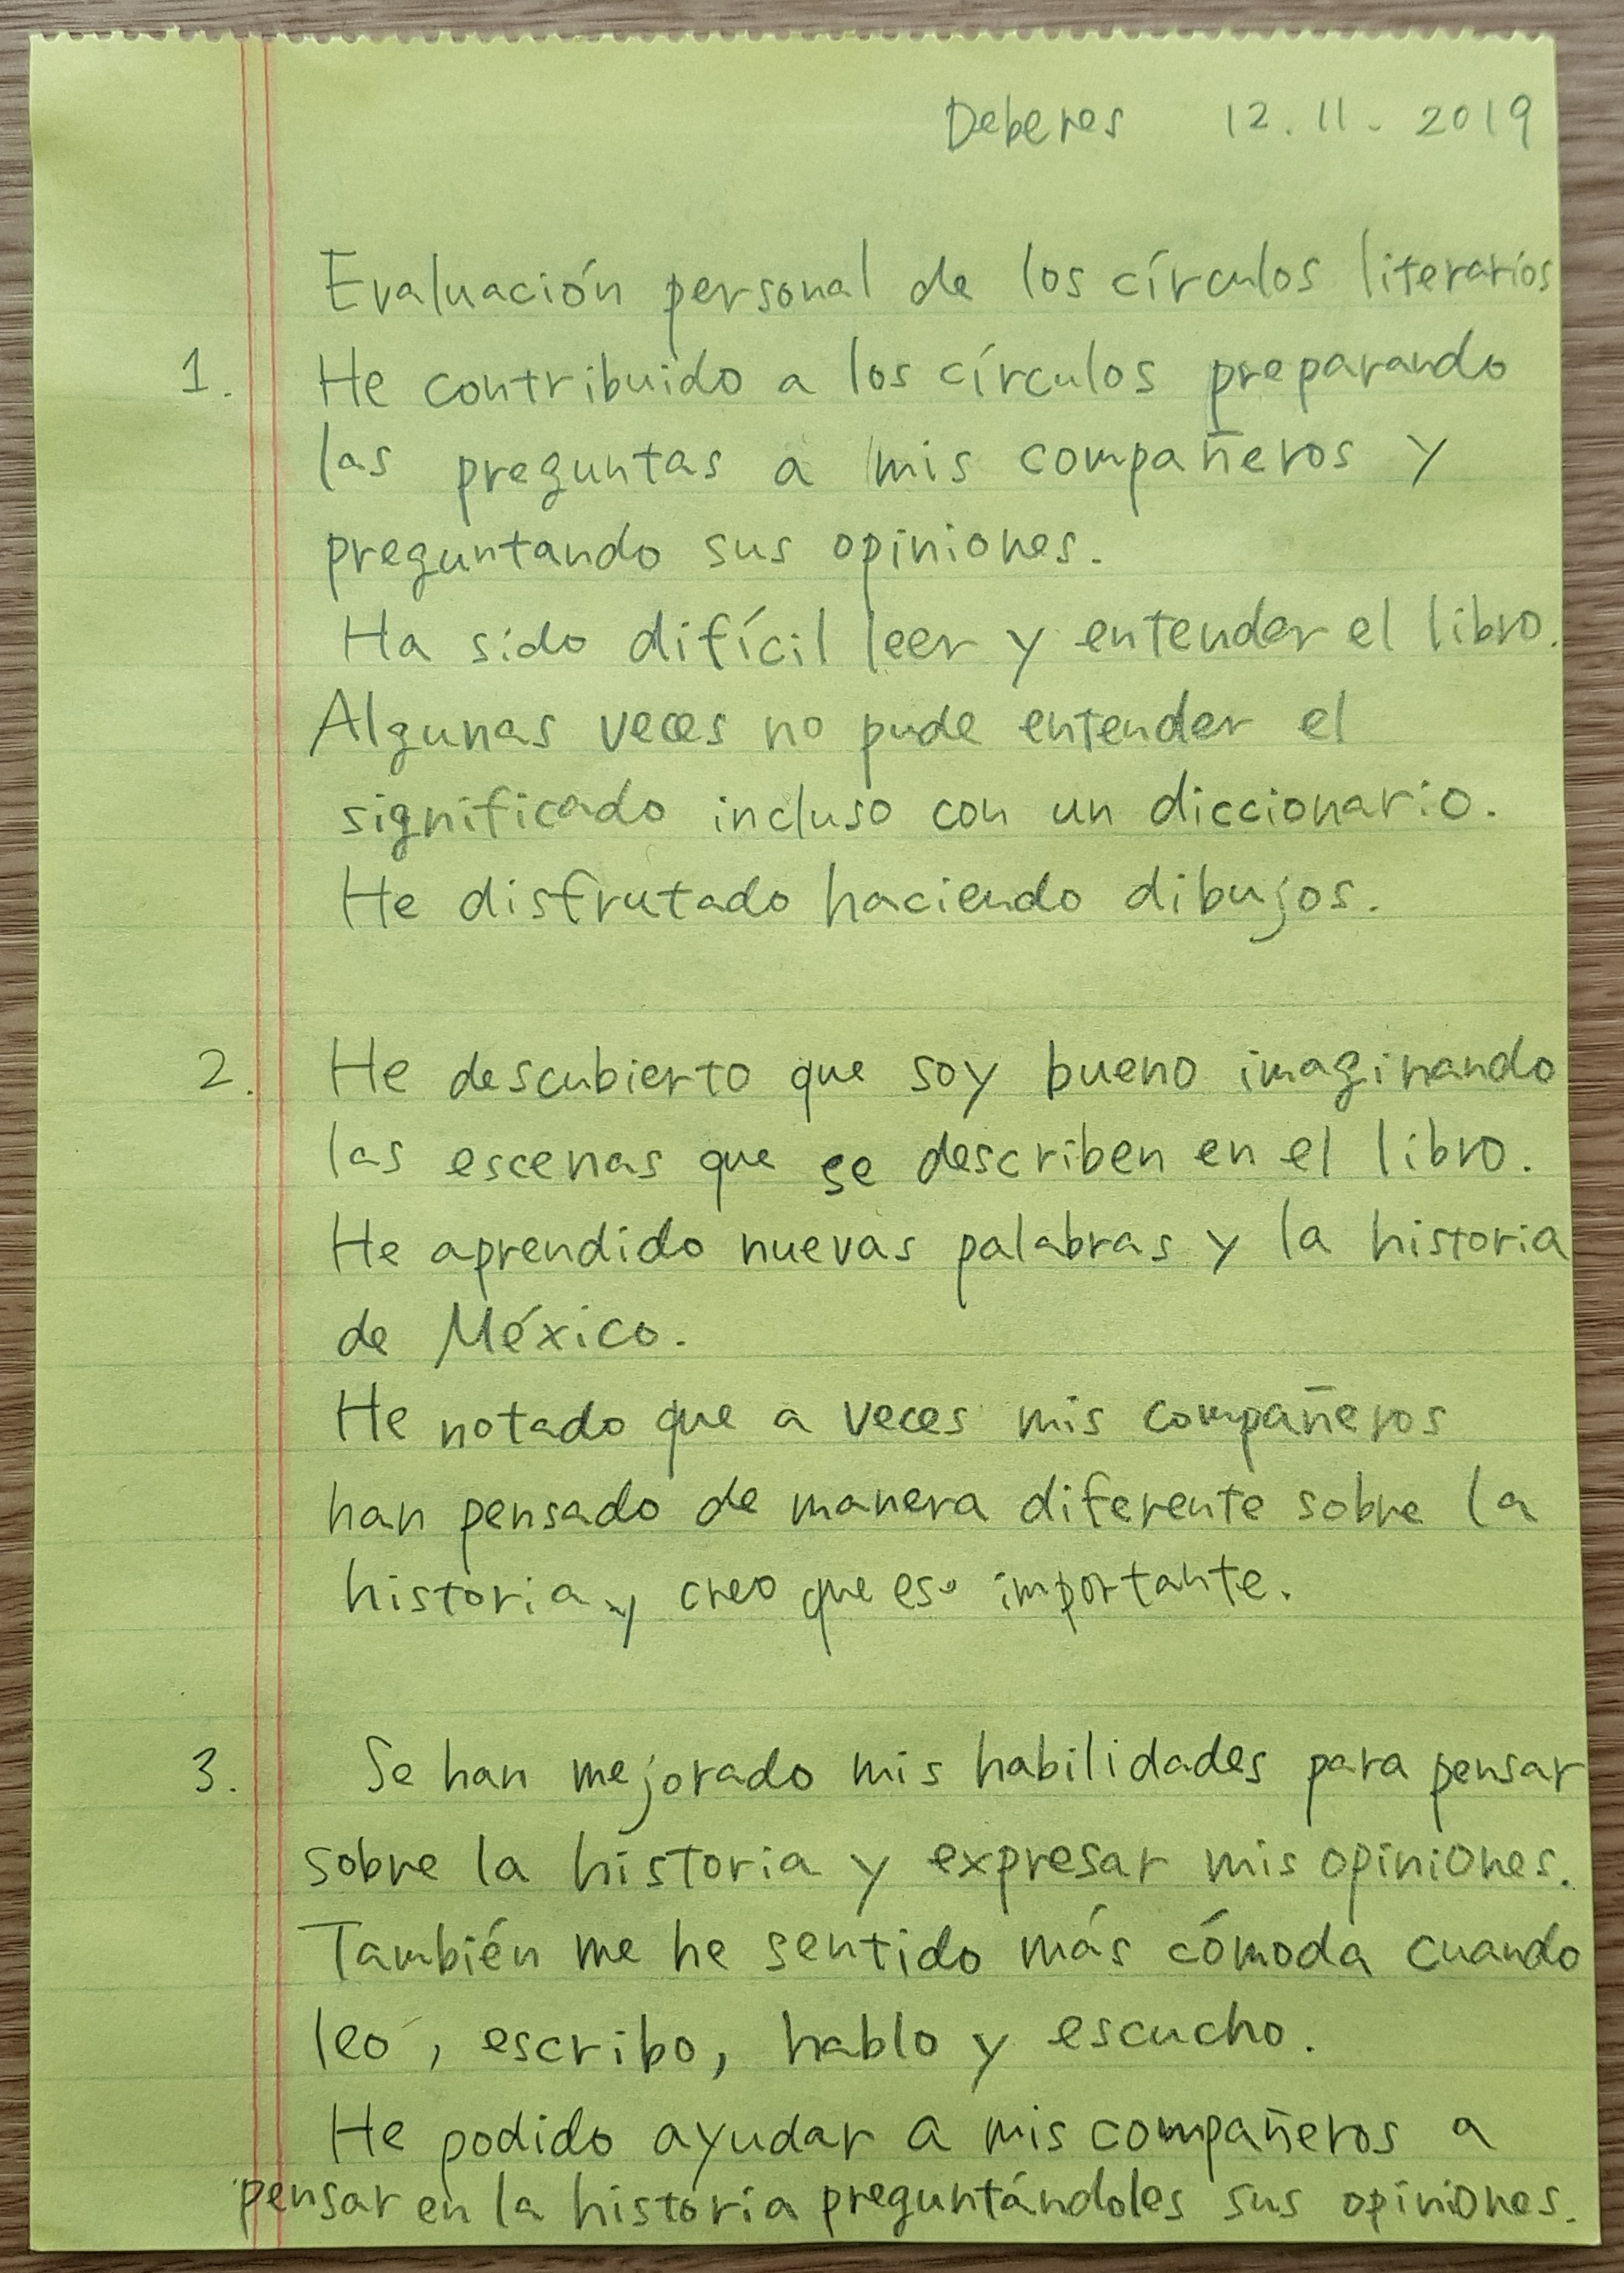 Deberes 12.11.2019
Evaluación personal de los círculos literarios
1. He contribuido a los círculos preparando
las preguntas a mis compañeros y
preguntando sus opiniones.
Ha sido difícil leer y entender el libro.
Algunas veces no pude entender el
significado incluso con un diccionario.
He disfrutado haciendo dibujos.
2. He descubierto que soy bueno imaginando
las escenas que se describen en el libro.
He aprendido nuevas palabras y la historia
de México.
He notado que a veces mis compañeros
han pensado de manera diferente sobre la
historia y creo que eso importante.
3. Se han mejorado mis habilidades para pensar
sobre la historia y expresar mis opiniones.
También me he sentido más cómoda cuando
leo, escribo, hablo y escucho.
He podido ayudar a mis compañeros a
pensar en la historia preguntándoles sus opiniones.